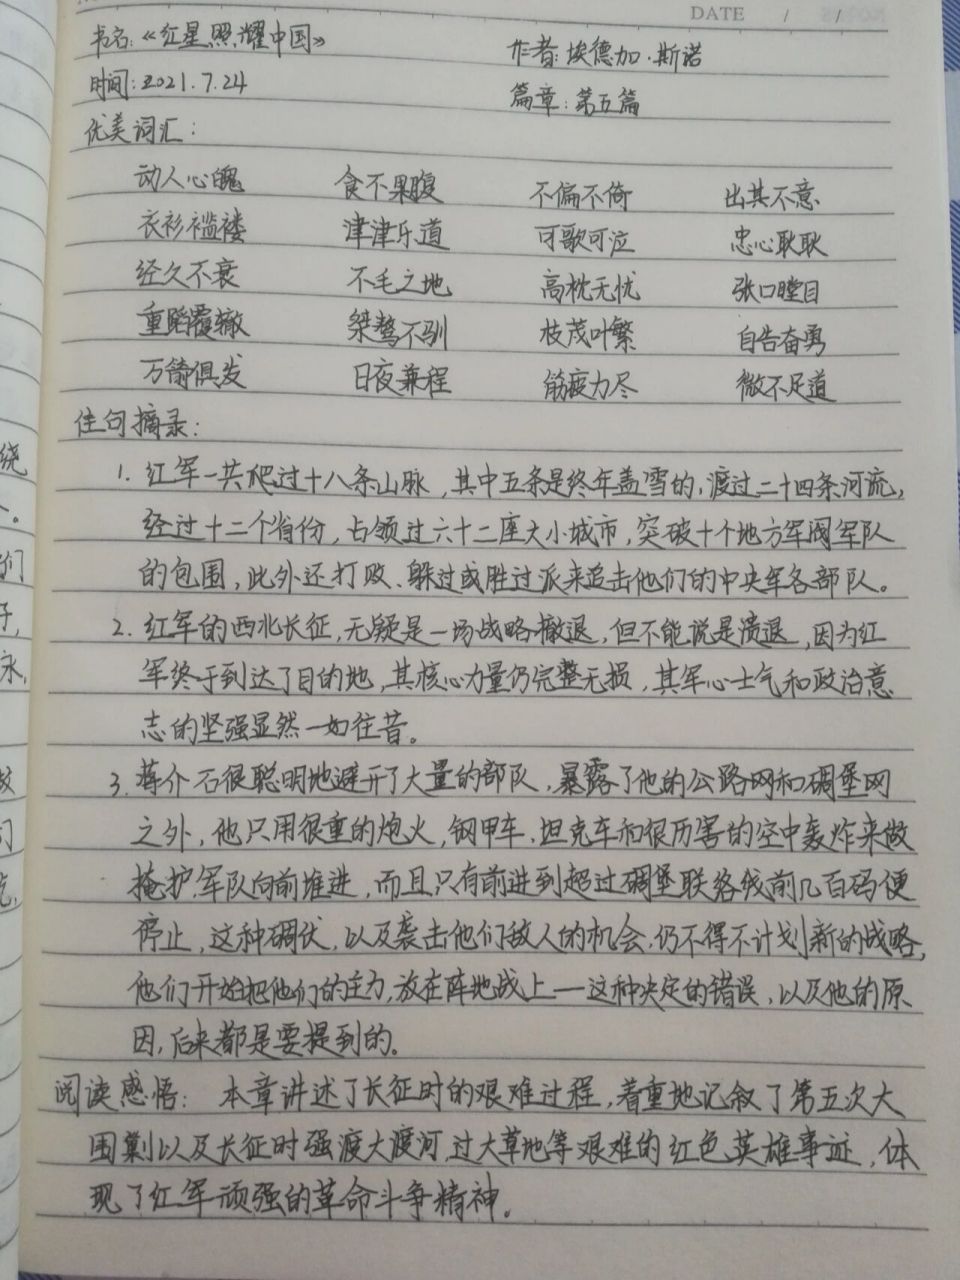 DATE / /
书名:《红星照耀中国》 作者:埃德加·斯诺
时间:2021.7.24 篇章:第五篇
优美词汇:
动人心魄 食不果腹 不偏不倚 出其不意
衣衫褴褛 津津乐道 可歌可泣 忠心耿耿
经久不衰 不毛之地 高枕无忧 张口瞠目
重蹈覆辙 桀骜不驯 枝茂叶繁 自告奋勇
万箭俱发 日夜兼程 筋疲力尽 微不足道
佳句摘录:
1. 红军一共爬过十八条山脉,其中五条是终年盖雪的,渡过二十四条河流,
经过十二个省份,占领过六十二座大小城市,突破十个地方军阀军队
的包围,此外还打败、躲过或胜过派来追击他们的中央军各部队。
2. 红军的西北长征,无疑是一场战略撤退,但不能说是溃退,因为红
军终于到达了目的地,其核心力量仍完整无损,其军心士气和政治意
志的坚强显然一如往昔。
3. 蒋介石很聪明地避开了大量的部队,暴露了他的公路网和碉堡网
之外,他只用很重的炮火,钢甲车、坦克车和很厉害的空中轰炸来做
掩护,军队向前堆进,而且只有前进到超过碉堡联络线前几百码便
停止,这种碉伏,以及袭击他们敌人的机会,仍不得不计划新的战略,
他们开始把他们的主力,放在阵地战上—这种决定的错误,以及他的原
因,后来都是要提到的。
阅读感悟: 本章讲述了长征时的艰难过程,着重地记叙了第五次大
围剿以及长征时强渡大渡河,过大草地等艰难的红色英雄事迹,体
现了红军顽强的革命斗争精神。
绕
们
子,
永,